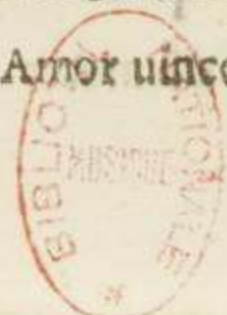 Amor uince
BIBLIO TIONALE